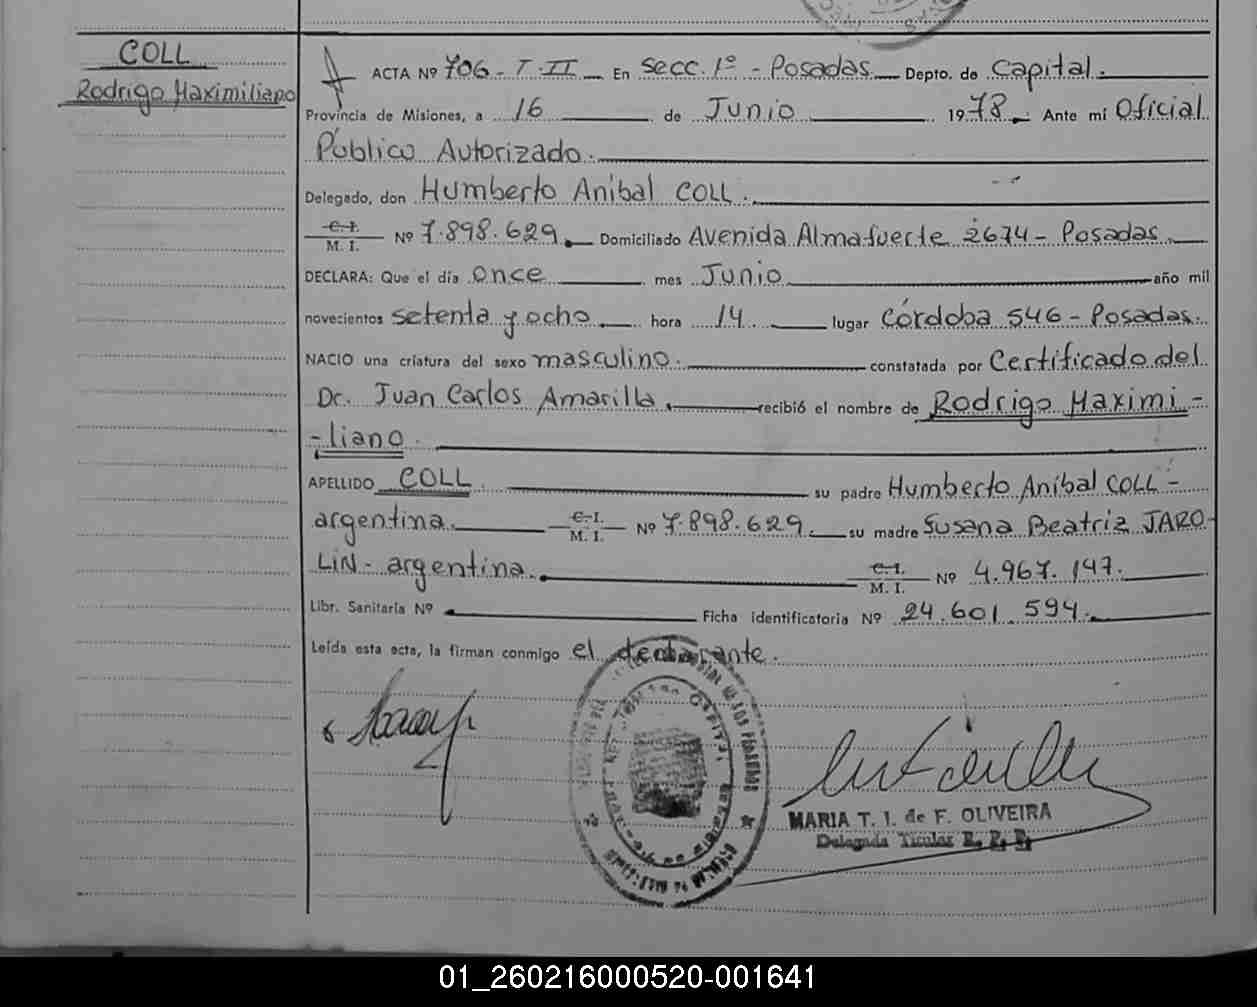 COLL
Rodrigo Maximiliano
ACTA Nº 706 - T - II En Secc. 1º - Posadas Depto. de Capital.
Provincia de Misiones, a 16 de Junio 1978. Ante mí Oficial
Público Autorizado.
Delegado, don Humberto Anibal COLL.
C. I.
M. I. Nº 7.898.629. Domiciliado Avenida Almafuerte 2674 - Posadas.
DECLARA: Que el día once mes Junio año mil
novecientos setenta y ocho hora 14 lugar Córdoba 546 - Posadas.
NACIO una criatura del sexo masculino. constatada por Certificado del
Dr. Juan Carlos Amarilla, recibió el nombre de Rodrigo Maximi -
- liano.
APELLIDO COLL. su padre Humberto Anibal COLL -
argentina. C. I.
M. I. Nº 7.898.629. su madre Susana Beatriz JARO-
LIN - argentina. C. I.
M. I. Nº 4.967.147.
Libr. Sanitaria Nº Ficha identificatoria Nº 24.601.594.
Leída esta acta, la firman conmigo el declarante.
MARIA T. I. de F. OLIVEIRA
Delegada Titular
01_260216000520-001641